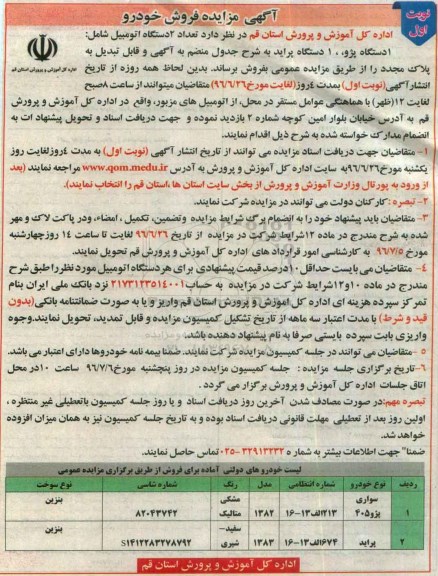 نوبت اول
آگهی مزایده فروش خودرو
اداره کل آموزش و پرورش استان قم در نظر دارد تعداد ۲دستگاه اتومبیل شامل:
۱دستگاه پژو، ۱ دستگاه پراید به شرح جدول منضم به آگهی و قابل تبدیل به
پلاک مجدد را از طریق مزایده عمومی بفروش برساند. بدین لحاظ همه روزه از تاریخ
انتشارآگهی (نوبت اول) بمدت ۴روز(لغایت مورخ۹۶/۶/۲۶) متقاضیان میتوانند از ساعت ۸صبح
لغایت ۱۲(ظهر) با هماهنگی عوامل مستقر در محل، از اتومبیل های مزبور، واقع در اداره کل آموزش و پرورش
قم به آدرس خیابان بلوار امین کوچه شماره ۲ بازدید نموده و جهت دریافت اسناد و تحویل پیشنهاد ات به
انضمام مدارک خواسته شده به شرح ذیل اقدام نمایند.
۱- متقاضیان جهت دریافت اسناد مزایده می توانند از تاریخ انتشار آگهی (نوبت اول) به مدت ۴روزلغایت روز
یکشنبه مورخ۹۶/۶/۲۶به سایت اداره کل آموزش و پرورش به آدرس www.qom.medu.ir مراجعه نمایند (بعد
از ورود به پورتال وزارت آموزش و پرورش از بخش سایت استان ها ،استان قم را انتخاب نمایند).
۲- تبصره : کارکنان دولت می توانند در مزایده شرکت نمایند.
۳- متقاضیان باید پیشنهاد خود را به انضمام برگ شرایط مزایده وتضمین، تکمیل ، امضاء، ودر پاکت لاک و مهر
شده به شرح مندرج در ماده ۱۲شرایط شرکت در مزایده از تاریخ ۹۶/۶/۲۶ لغایت تا ساعت ۱۴ روزچهارشنبه
مورخ ۹۶/۷/۵ به کارشناسی امور قرارداد های اداره کل آموزش و پرورش قم تحویل نمایند.
۴- متقاضیان می بایست حداقل ۱۰درصدقیمت پیشنهادی برای هردستگاه اتومبیل مورد نظرراطبق شرح
مندرج در ماده ۱۰و۱۲شرایط شرکت در مزایده به حساب۲۱۷۳۱۲۳۵۱۴۰۰۱ نزد بانک ملی ایران بنام
تمرکز سپرده هزینه ای اداره کل آموزش و پرورش استان قم واریز و یا به صورت ضمانتنامه بانکی(بدون
قید و شرط) با مدت اعتبار سه ماهه از تاریخ تشکیل کمیسیون مزایده و قابل تمدید، تحویل نمایند.وجوه
واریزی بابت سپرده بایستی صرفا به نام پیشنهاد دهنده باشد.
۵ -متقاضیان می توانند در جلسه کمیسیون مزایده شرکت نمایند. ضمنا بیمه نامه خودروها دارای اعتبار می باشد.
۶-تاریخ برگزاری جلسه مزایده : جلسه کمیسیون مزایده در روز پنجشنبه مورخ۹۶/۷/۶ ساعت ۱۰در محل
اتاق جلسات اداره کل آموزش و پرورش برگزار می گردد .
تبصره مهم:در صورت مصادف شدن آخرین روز دریافت اسناد و یا روز جلسه کمیسیون باتعطیلی غیر منتظره ،
اولین روز بعد از تعطیلی مهلت قانونی دریافت اسناد بوده و به تاریخ جلسه کمیسیون نیز به همان میزان افزوده
خواهد شد.
ضمنا" جهت اطلاعات بیشتر به شماره ۳۲۹۱۳۲۳۲-۰۲۵ تماس حاصل نمایند.
لیست خودرو های دولتی آماده برای فروش از طریق برگزاری مزایده عمومی
ردیف نوع خودرو شماره انتظامی مدل رنگ شماره شاسی نوع سوخت
۱ سواری پژو۴۰۵ ۲۱۳الف۱۳-۱۶ ۱۳۸۲ مشکی متالیک ۸۲۰۴۳۷۴۲ بنزین
۲ پراید ۶۷۴الف۱۳-۱۶ ۱۳۸۳ سفید- شیری S۱۴۱۲۲۸۳۲۷۸۷۹۲ بنزین
اداره کل آموزش و پرورش استان قم